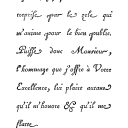 reprise pour le zele qui
m'anime pour le bien public,
Puisse donc Monsieur,
l'hommage que j'offre à Votre
Excellence, lui plaire autant
qu'il m'honore & qu'il me
flatte.